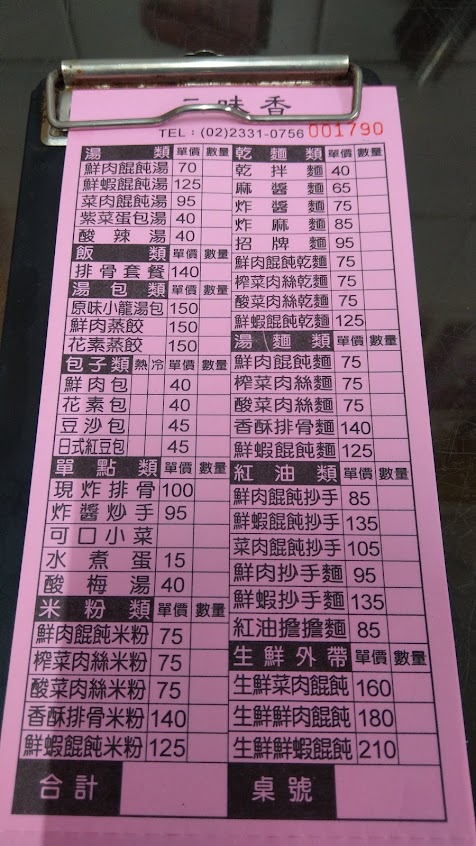 味香
TEL：(02)2331-0756 001790
湯類 單價 數量
鮮肉餛飩湯 70
鮮蝦餛飩湯 125
菜肉餛飩湯 95
紫菜蛋包湯 40
酸辣湯 40
飯類 單價 數量
排骨套餐 140
湯包類 單價 數量
原味小籠湯包 150
鮮肉蒸餃 150
花素蒸餃 150
包子類 熱 冷 單價 數量
鮮肉包 40
花素包 40
豆沙包 45
日式紅豆包 45
單點類 單價 數量
現炸排骨 100
炸醬炒手 95
可口小菜
水煮蛋 15
酸梅湯 40
米粉類 單價 數量
鮮肉餛飩米粉 75
榨菜肉絲米粉 75
酸菜肉絲米粉 75
香酥排骨米粉 140
鮮蝦餛飩米粉 125
合計
乾麵類 單價 數量
乾拌麵 40
麻醬麵 65
炸醬麵 75
炸麻麵 85
招牌麵 95
鮮肉餛飩乾麵 75
榨菜肉絲乾麵 75
酸菜肉絲乾麵 75
鮮蝦餛飩乾麵 125
湯麵類 單價 數量
鮮肉餛飩麵 75
榨菜肉絲麵 75
酸菜肉絲麵 75
香酥排骨麵 140
鮮蝦餛飩麵 125
紅油類 單價 數量
鮮肉餛飩抄手 85
鮮蝦餛飩抄手 135
菜肉餛飩抄手 105
鮮肉抄手麵 95
鮮蝦抄手麵 135
紅油擔擔麵 85
生鮮外帶 單價 數量
生鮮菜肉餛飩 160
生鮮鮮肉餛飩 180
生鮮鮮蝦餛飩 210
桌號